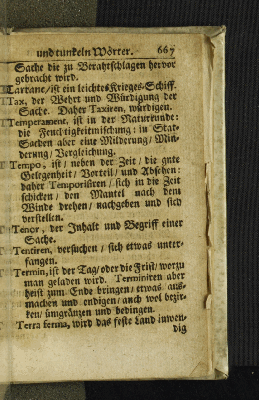 und tunkeln Wörter. 667
Sache die zu Berahtschlagen hervor
gebracht wird.
Tartane/ist ein leichtes Krieges-Schiff.
Tax, der Wehrt und Würdigung der
Sache. Daher Taxiren, würdigen.
Temperament, ist in der Naturkunde:
die Feuchtigkeitmischung: in Stat-
Sachen aber eine Milderung/ Min-
derung/ Vergleichung.
Tempo, ist/ neben der Zeit/ die gute
Gelegenheit/ Vorteil/ und Absehen:
daher Temporisiren/ sich in die Zeit
schicken/ den Mantel nach dem
Winde drehen/ nachgeben und sich
verstellen.
Tenor, der Inhalt und Begriff einer
Sache.
Tentiren, versuchen/ sich etwas unter-
fangen.
Termin, ist der Tag/ oder die Frist/ worzu
man geladen wird. Terminiren aber
heist zum Ende bringen/ etwas aus-
machen und endigen/ auch wol bezir-
ken/ umgränzen und bedingen.
Terra ferma, wird das feste Land inwen-
dig